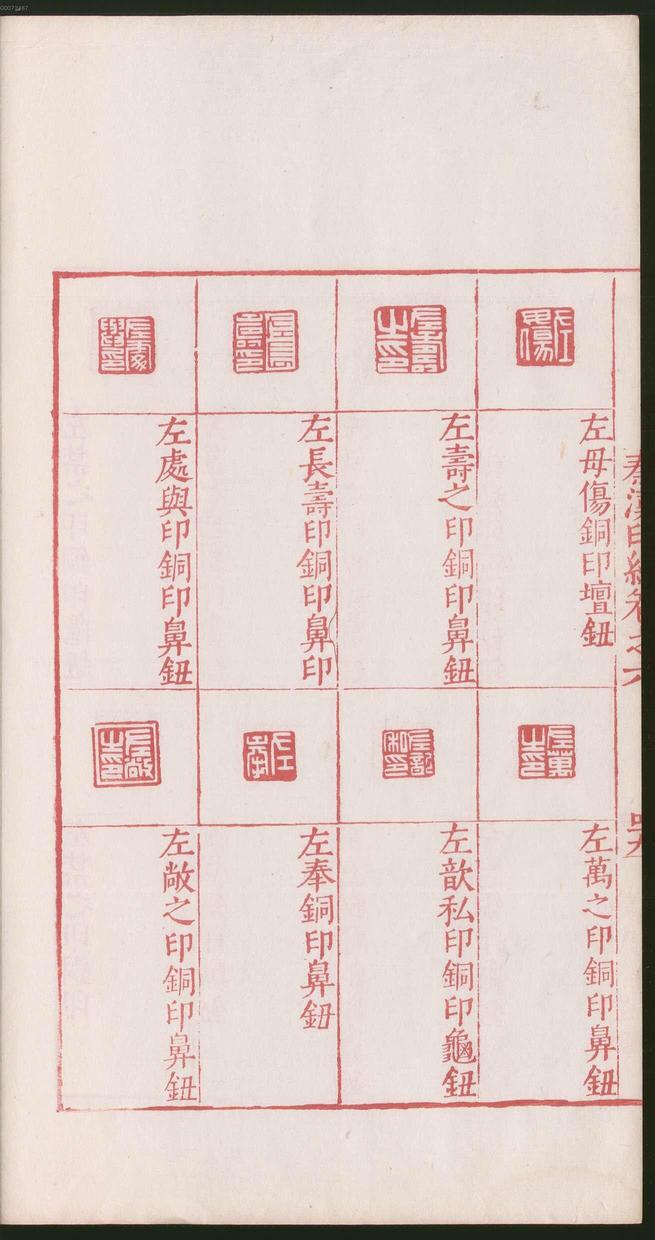 00073467
左毋傷銅印壇鈕
左壽之印銅印鼻鈕
左長壽印銅印鼻印
左處與印銅印鼻鈕
左萬之印銅印鼻鈕
左歆私印銅印龜鈕
左奉銅印鼻鈕
左敞之印銅印鼻鈕